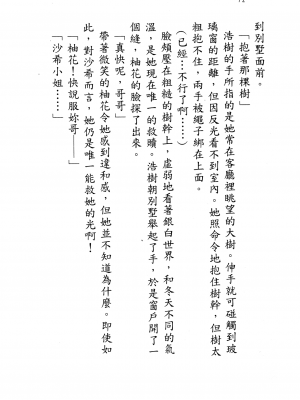 到別墅面前。
「抱著那棵樹」
浩樹的手所指的是她常在客廳裡眺望的大樹。伸手就可碰觸到玻
璃窗的距離，但因反光看不到室內。她照命令地抱住樹幹，但樹太
粗抱不住，兩手被繩子綁在上面。
（已經…不行了啊……）
臉頰壓在粗糙的樹幹上，虛弱地看著銀白世界，和冬天不同的氣
溫，是她現在唯一的救贖。浩樹朝別墅舉起了手，於是窗戶開了一
個縫，柚花的臉探了出來。
「真快呢，哥哥」
帶著微笑的柚花令她感到違和感，但她並不知道為什麼。即使如
此，對沙希而言，她仍是唯一能救她的光啊！
「柚花！快說服妳哥——」
「沙希小姐……」